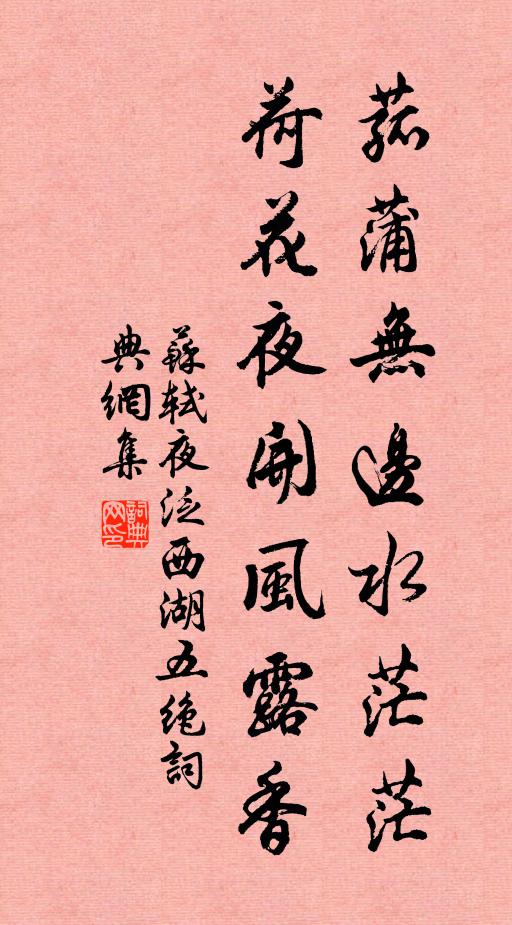 菰蒲無邊水茫茫
荷花夜開風露香
蘇軾夜泛西湖五絕詞
典網集
詞典網印